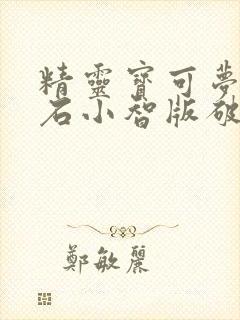 精靈寶可夢
石小智版破
鄭敏麗